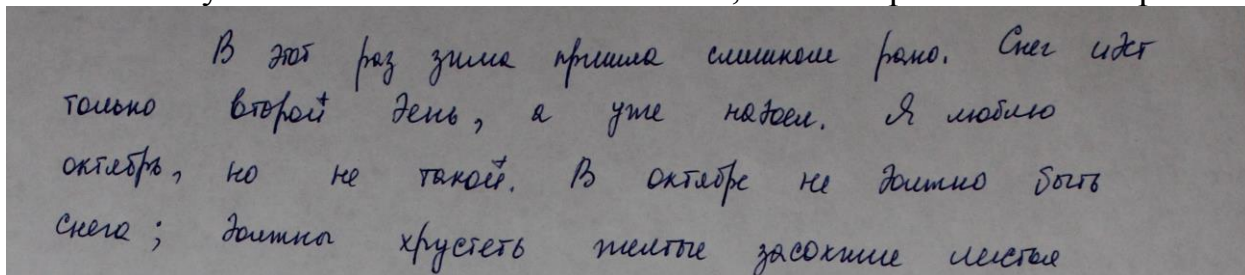 В этот раз зима пришла слишком рано. Снег идет
только второй день, а уже надоел. Я люблю
октябрь, но не такой. В октябре не должно быть
снега; должны хрустеть желтые засохшие листья